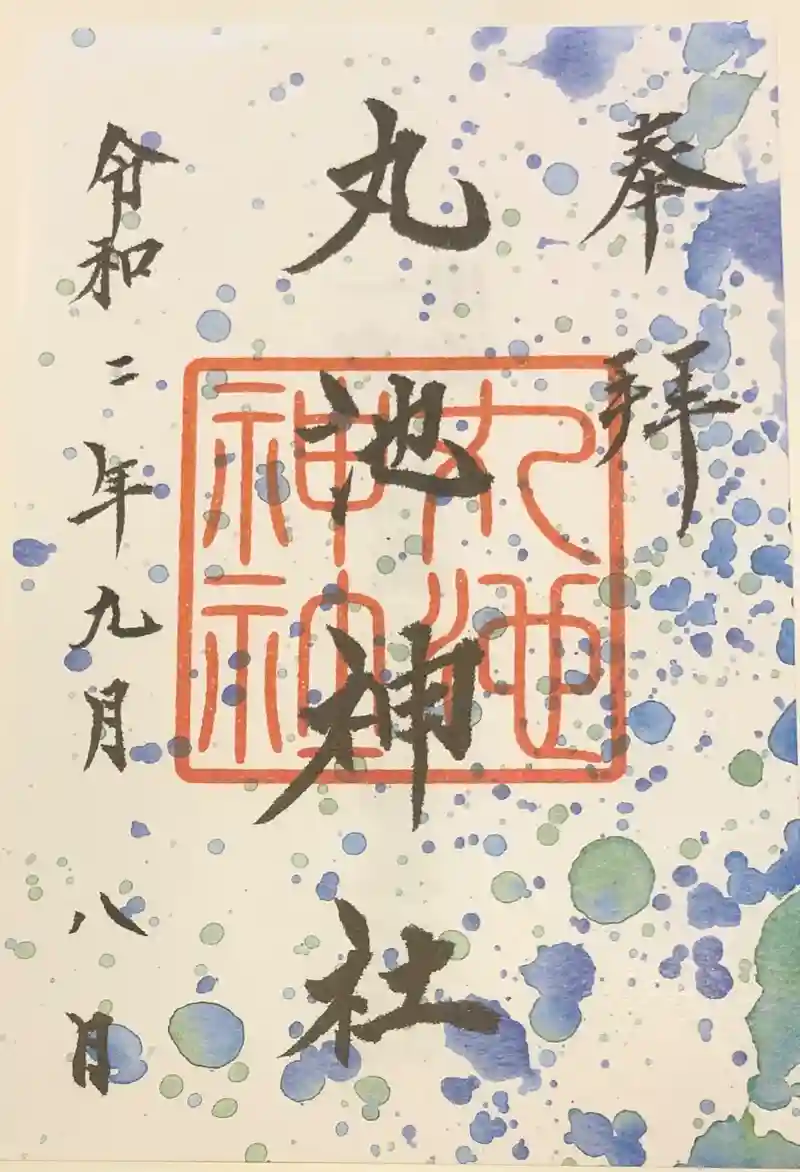 奉拝
丸池神社
丸池神社
令和二年九月八月